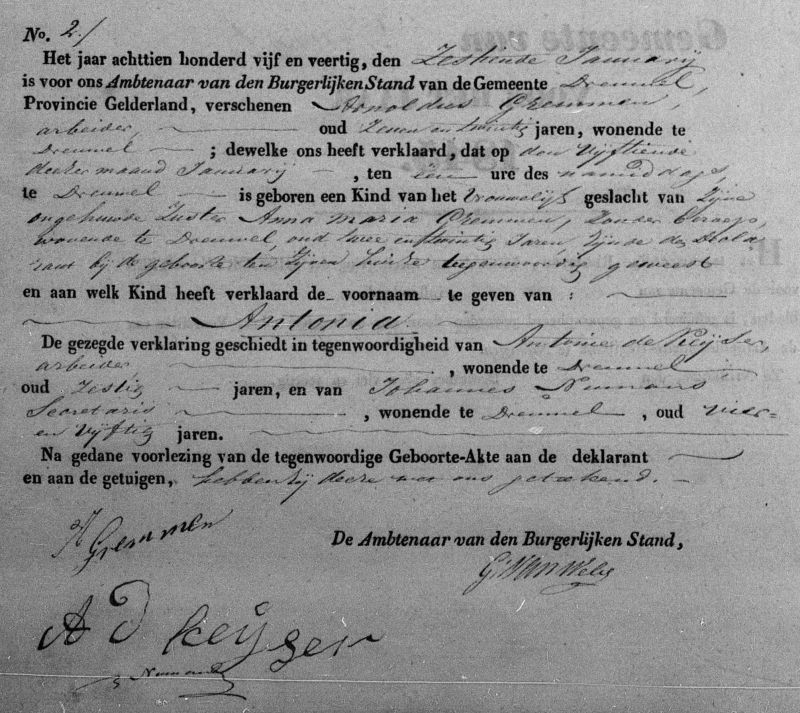 No. 2/
Het jaar achttien honderd vijf en veertig, den Zestiende Januarij
is voor ons Ambtenaar van den Burgerlijken Stand van de Gemeente Dreumel,
Provincie Gelderland, verschenen Arnoldus Gremmen,
arbeider, oud Zeven en twintig jaren, wonende te
Dreumel ; dewelke ons heeft verklaard, dat op den Vijftiende
dezer maand Januarij , ten één ure des namiddags,
te Dreumel is geboren een Kind van het Vrouwelijk geslacht van Zijne
ongehuwde Zuster Anna Maria Gremmen, Zonder beroep,
wonende te Dreumel, oud twee en twintig Jaren, Zijnde de Dekla-
rant bij de geboorte ten Zijnen huize tegenwoordig geweest
en aan welk Kind heeft verklaard de voornaam te geven van :
Antonia
De gezegde verklaring geschiedt in tegenwoordigheid van Antonie de Keijser,
arbeider , wonende te Dreumel
oud Zestig jaren, en van Johannes Numans
Secretaris , wonende te Dreumel , oud vier-
en Vijftig jaren.
Na gedane voorlezing van de tegenwoordige Geboorte-Akte aan de deklarant
en aan de getuigen, hebben Zij deeze met ons geteekend.
A Gremmen
De Ambtenaar van den Burgerlijken Stand,
G. Van Welij
A D keijser
Numans
Gemeente van